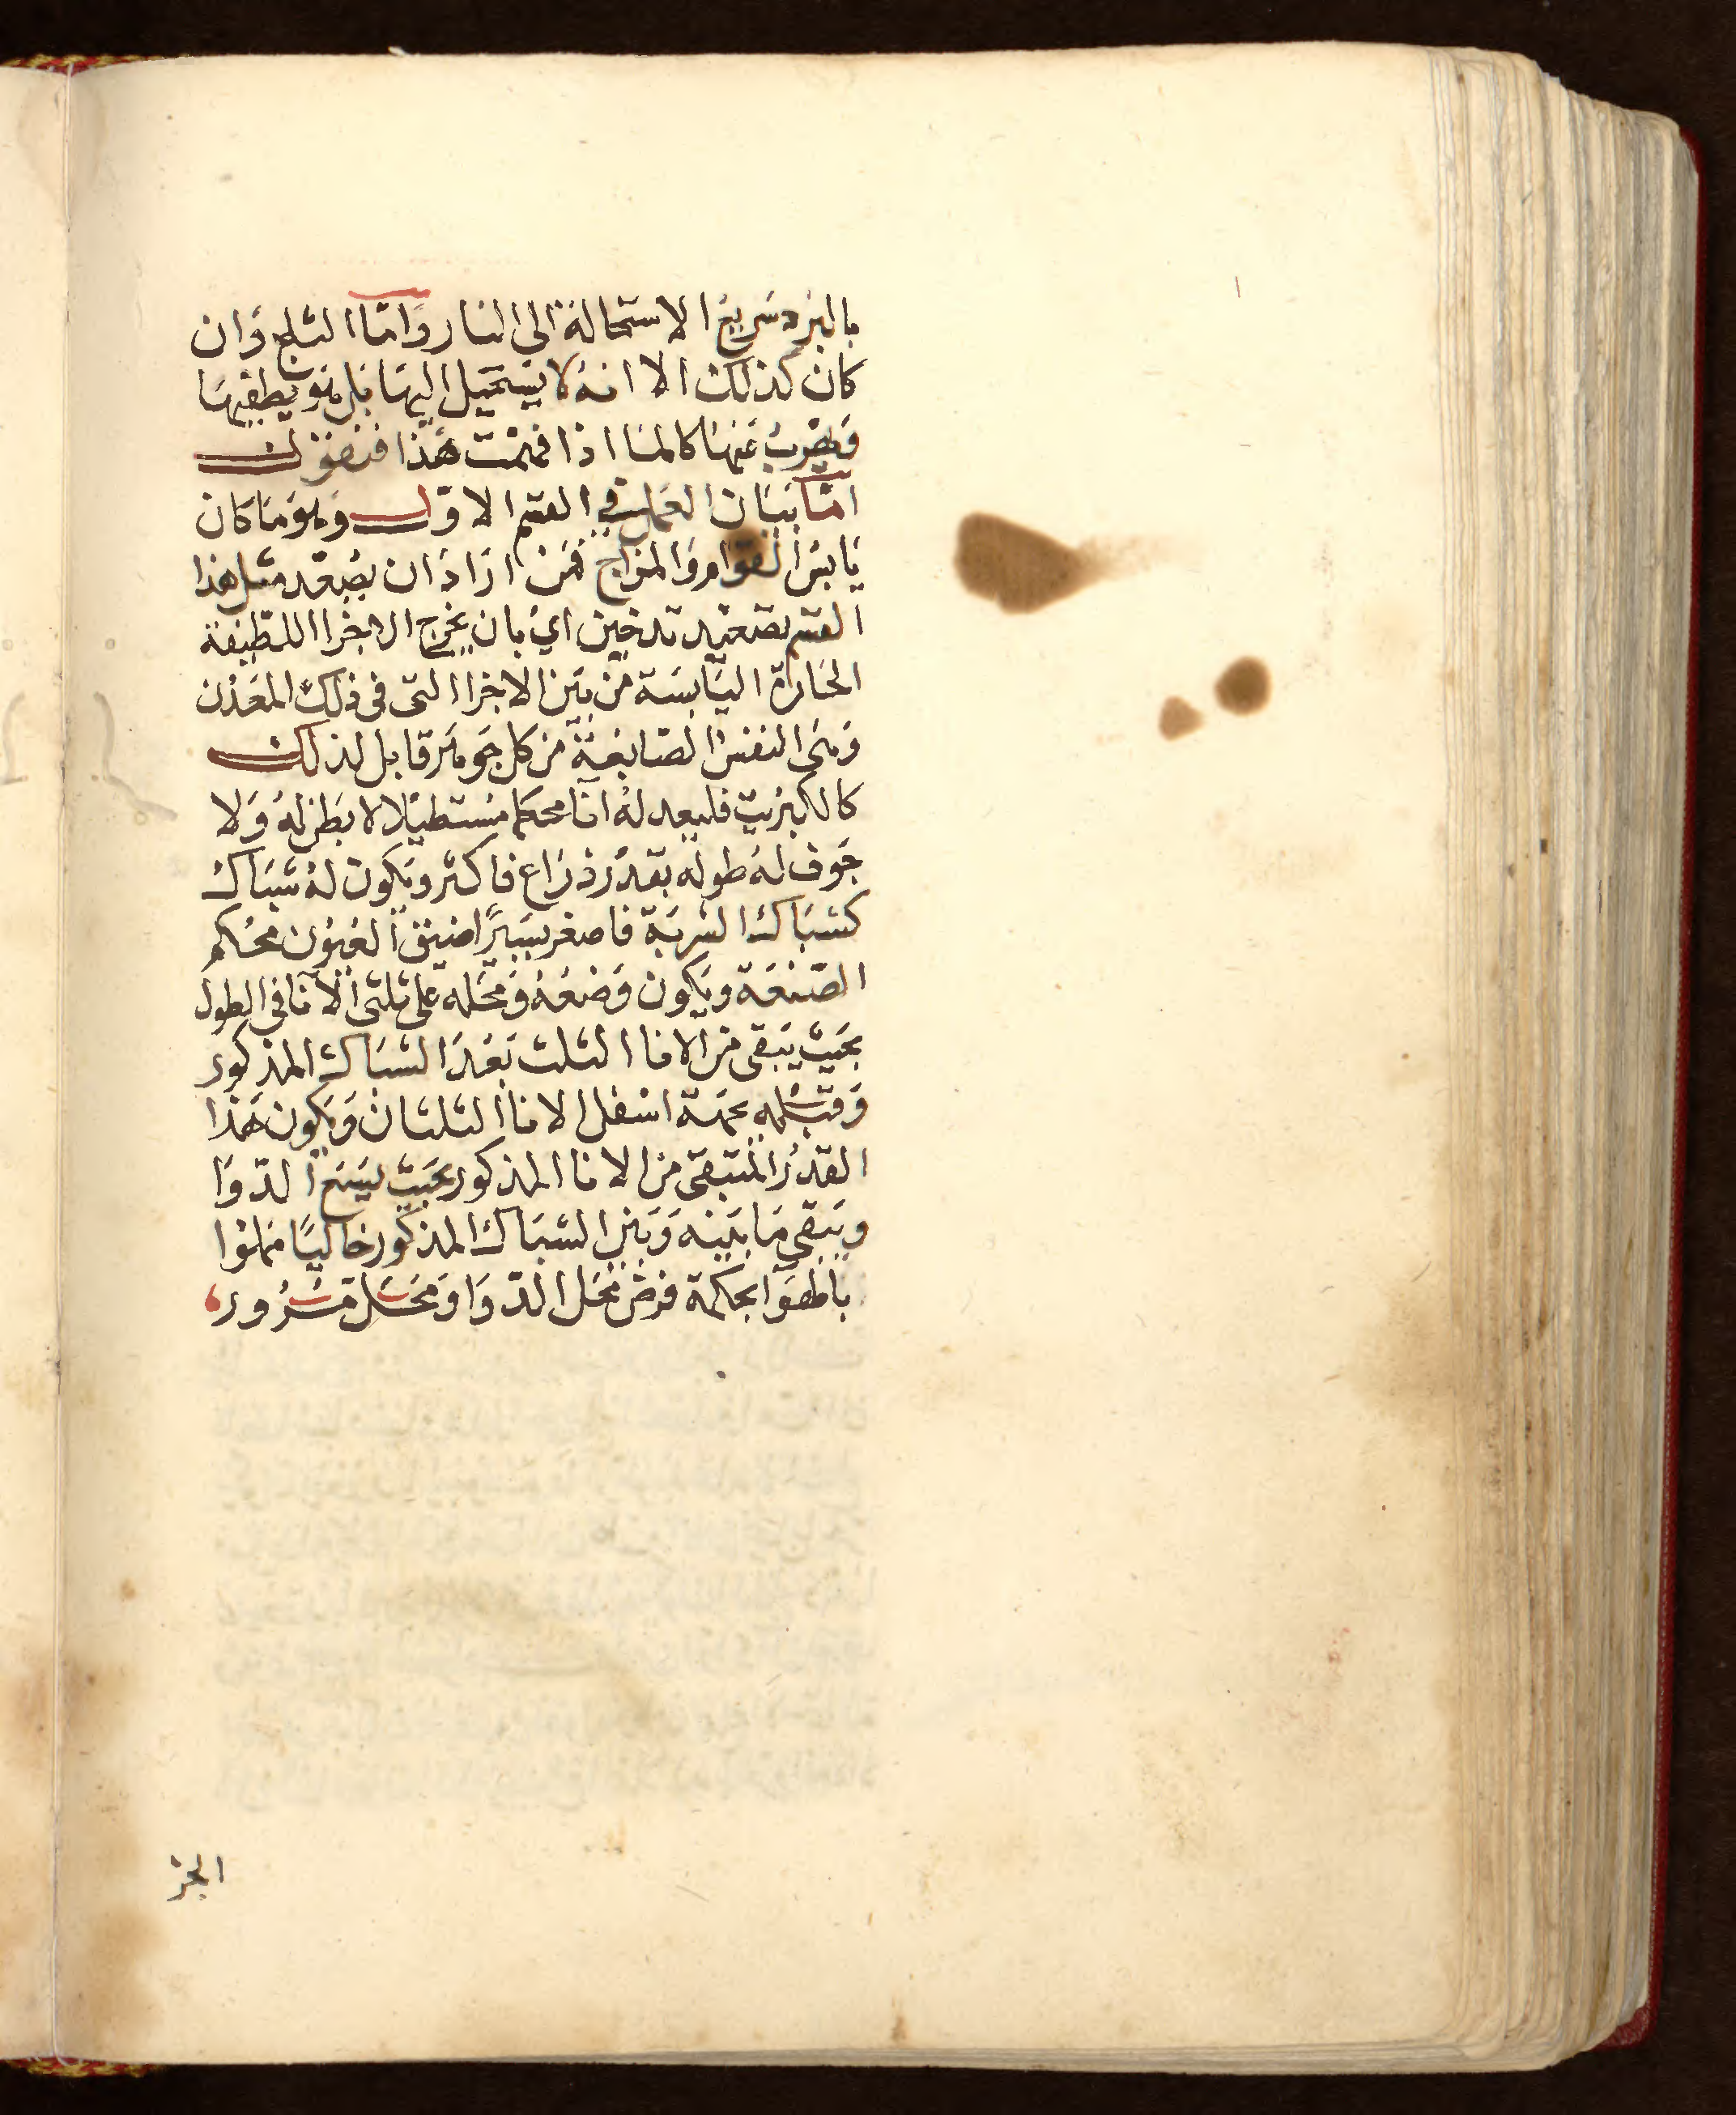 بالبرد سريع الاستحالة الى النار واما الثلج وان
كان كذلك الا انه لا يستحيل اليها بل هو يطفيها
فيهرب عنها كالماء اذا فهمت هذا فنقول
اما بيان العمل في القسم الاول وهو ما كان
يابس القوام والمزاج فمن اراد ان يصعد مثل هذا
القسم تصعيد تدخين اي بان يخرج الاجزا اللطيفة
الحارة اليابسة من بين الاجزا التى فى ذلك المعدن
وهى النفس الصابغة من كل جوهر قابل لذلك
كالكبريت فليعد له انا محكما مستطيلا لا بطن له ولا
جوف له طوله بقدر ذراع فاكثر ويكون له شباك
كشباك الشربة فاصغر يسيرا ضيق العيون محكم
الصنعة ويكون وضعه ومحله على ثلثى الانا فى الطول
بحيث يبقى من الانا الثلث بعد الشباك المذكور
وقبله بجهة اسفل الانا الثلثان ويكون هذا
القدر المتبقى من الانا المذكور بحيث يسع الدوا
ويبقى ما بينه وبين الشباك المذكور خاليا مملوا
بالهوا بحكمة فرض محل الدوا ومحل مرور
الجز